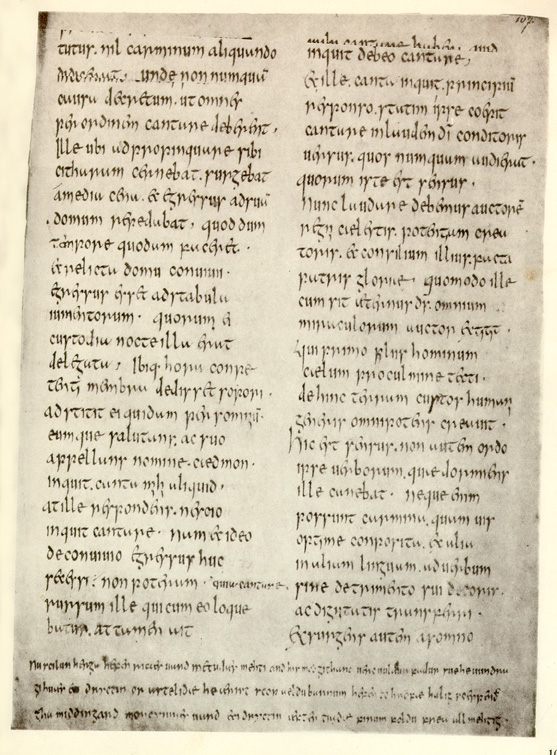 titur. nil carminum aliquando
unde non numquā
causa decretum. ut omnes
per ordinem cantare deberent.
ille ubi adpropinquare sibi
citharam cernebat. surgebat
a media cena. & egressus ad suā
domum repedabat. quod dum
tempore quodam faceret.
& relicta domu conuiuii.
egressus esset ad stabula
iumentorum. quorum ei
custodia nocte illa erat
delegata; ibiq. hora conpe
tenti membra dedisset sopori.
adstitit ei quidam per somniū.
eumque salutans. ac suo
appellans nomine. caedmon.
inquit. canta mihi aliquid.
at ille respondens. nescio
inquit cantare. nam & ideo
de conuiuio egressus huc
secessi. non poteram. quia cantare.
rursum ille qui cum eo loque
batur. attamen ait
107
mihi cantare habes. quid
inquit debeo cantare;
& ille. canta inquit. principiū
responso. statim ipse coepit
cantare in laudem dī conditoris
uersus. quos numquam audierat.
quorum iste est sensus.
Nunc laudare debemus auctorē
regni caelestis. potentiam crea
toris. & consilium illius. facta
patris gloriae. quomodo ille
cum sit aeternus ds. omnium
miraculorum auctor extitit.
Qui primo filiis hominum
caelum pro culmine tecti.
dehinc terram custos humani
generis omnipotens creauit.
Hic est sensus. non autem ordo
ipse uerborum. quae dormiens
ille canebat. neque enim
possunt carmina. quam uis
optime conposita. ex alia
in aliam linguam. ad uerbum
sine detrimento sui decoris.
ac dignitatis transferri.
Exurgens autem a somno
Nu scilun herga hefenricæs uard metudæs mehti and his modgithanc uerc uuldurfadur sue he uundra
gihuaes eci dryctin or astelidæ he ærist scop aeldu barnum hefen to hrofæ halig sceppend
tha middingard moncynnæs uard eci dryctin æfter tiadæ firum foldu frea allmehtig.